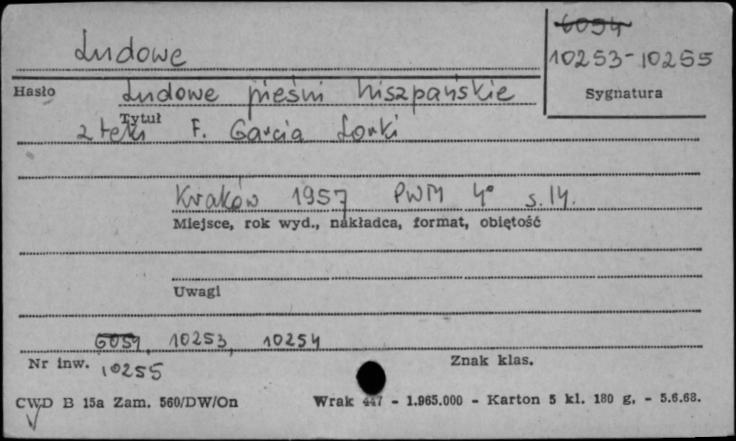 6094
Ludowe
10253-10255
Hasło
Ludowe pieśni hiszpańskie
Sygnatura
Tytuł
z teki F. Garcia Lorki
Kraków 1957 PWM 4° s. 14.
Miejsce, rok wyd., nakładca, format, obiętość
Uwagi
6059, 10253, 10254
Nr inw.
Znak klas.
10255
CWD B 15a Zam. 560/DW/On
Wrak 447 - 1.965.000 - Karton 5 kl. 180 g. - 5.6.68.